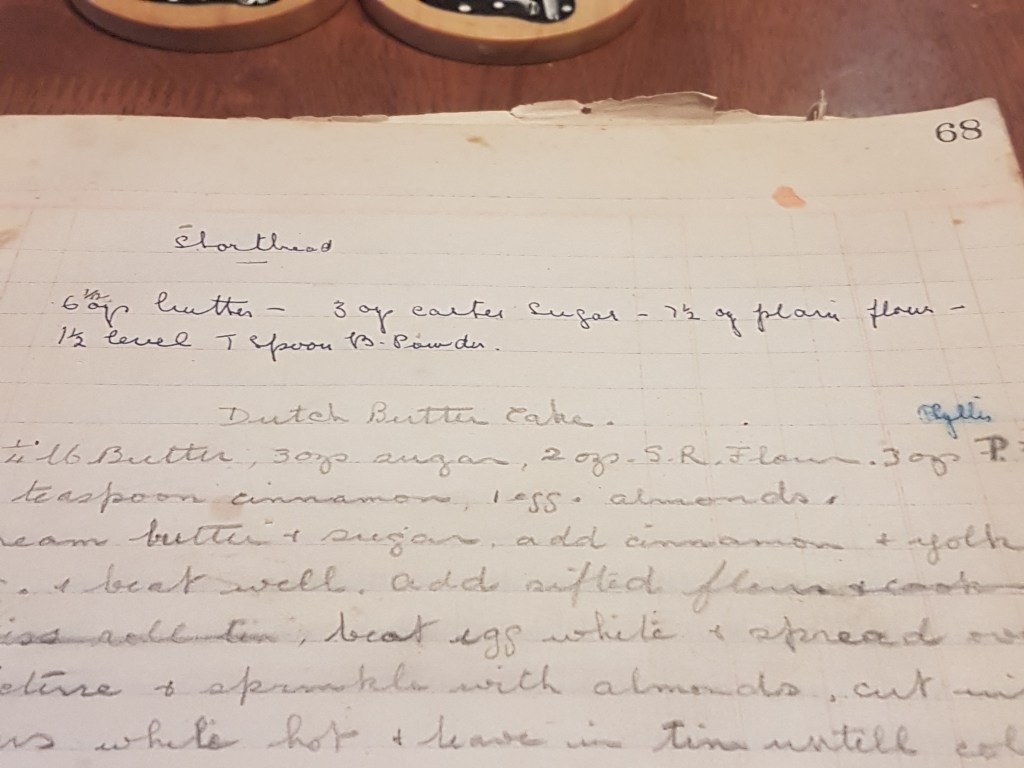 68
Shortbread
6 1/2 ozs butter - 3 oz caster Sugar - 7 1/2 oz plain flour -
1 1/2 level T Spoon B. Powder.
Dutch Butter Cake.
Phyllis
lb Butter, 3 ozs sugar, 2 ozs. S.R. Flour. 3 ozs P.
teaspoon cinnamon, 1 egg. almonds.
ream butter & sugar. add cinnamon & yolk
. & beat well. add sifted flour & cook
iss roll tin, beat egg white & spread ov
cture & sprinkle with almonds, cut in
rs while hot & leave in tin untill col